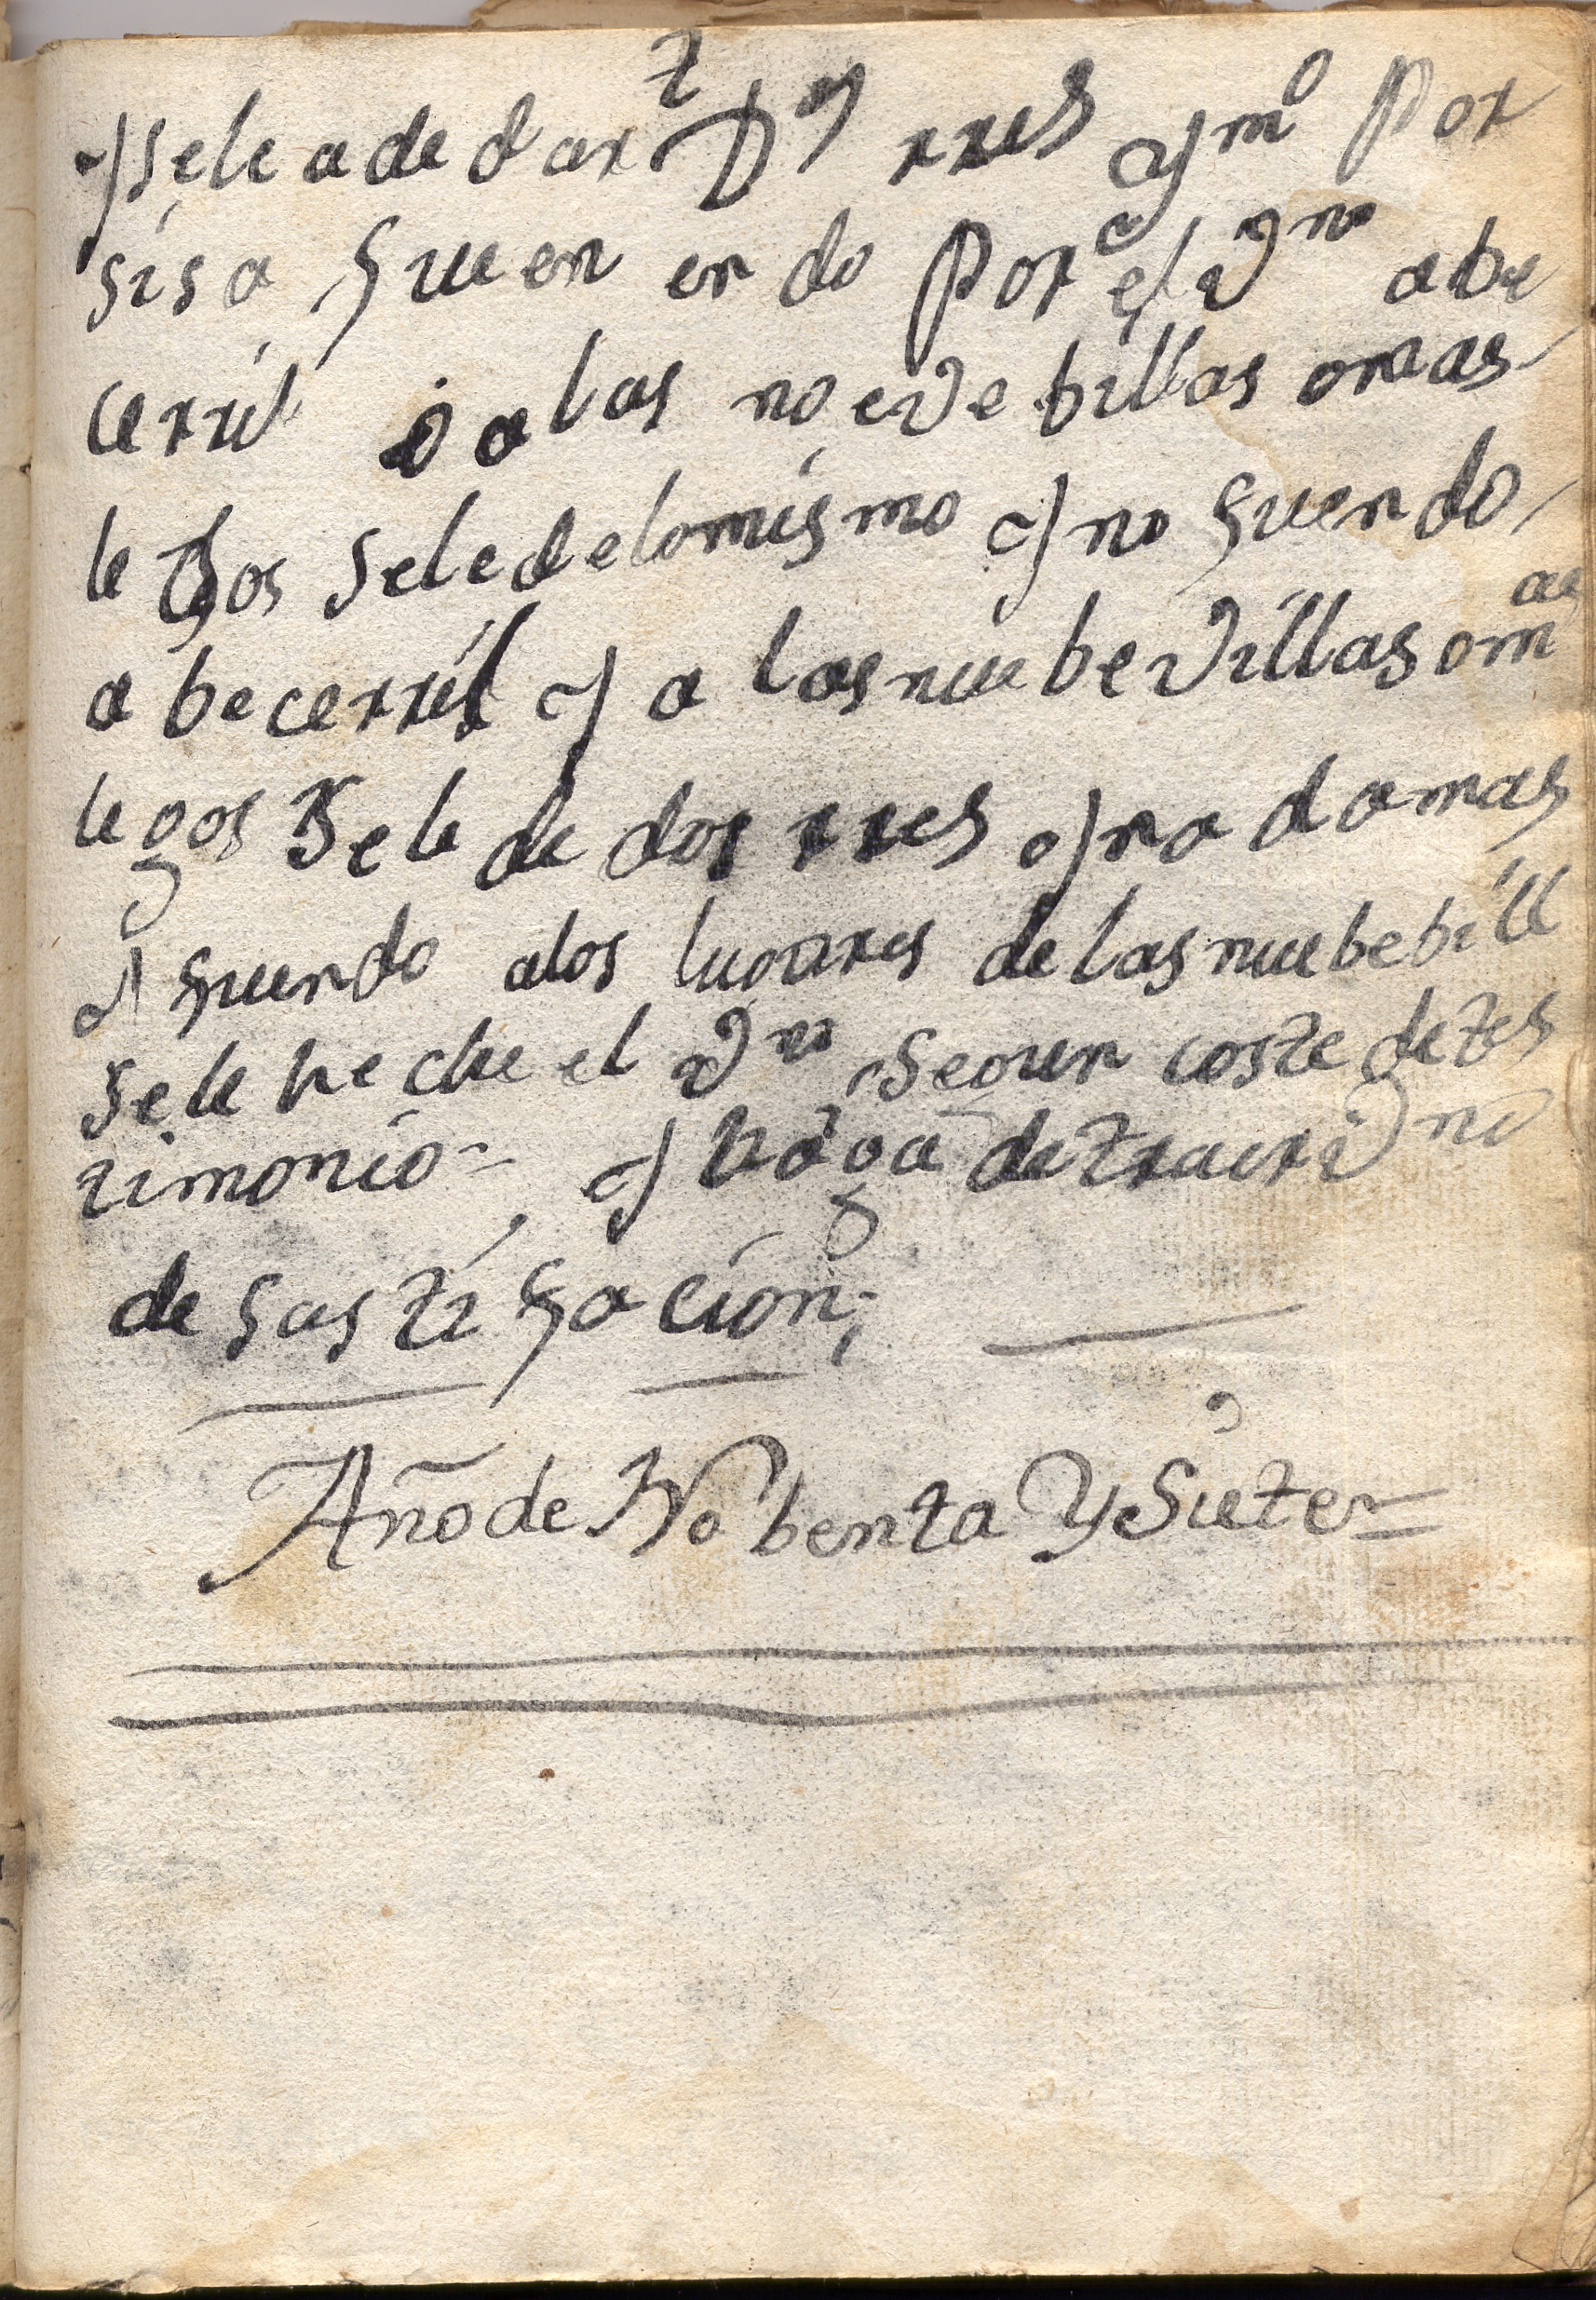 y se le a de dar Dos rres y mo Por
sisa yuen en do Por el vno a be
cerril o a las noeve billas o mas
le Jos se le de lo mismo y no yuendo
a becerril y a las nuebe villas o mas
legos se le de dos rres y no a da mas
y yuendo a los lugares de las nuebe bill
se le heche el vno segun coste de tes
timonio y haga de traer vno
de sastisfacion;
Año de Nobenta Y Siete